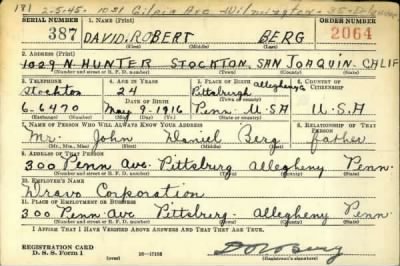 181 2-5-45- 1031 Gilpin Ave Wilmington-35-Delaware
SERIAL NUMBER 1. NAME (Print) ORDER NUMBER
387 DAVID ROBERT BERG 2064
(First) (Middle) (Last)
2. ADDRESS (Print)
1029 N. HUNTER STOCKTON, SAN JOAQUIN. CALIF
(Number and street or R. F. D. number) (Town) (County) (State)
3. TELEPHONE 4. AGE IN YEARS 5. PLACE OF BIRTH 6. COUNTRY OF CITIZENSHIP
Stockton 24 Pittsburgh Allegheny
(Exchange) DATE OF BIRTH (Town or county)
6-6470 May 9-1916 Penn. U.S.A U.S.A.
(Number) (Mo.) (Day) (Yr.) (State or country)
7. NAME OF PERSON WHO WILL ALWAYS KNOW YOUR ADDRESS 8. RELATIONSHIP OF THAT PERSON
Mr. John Daniel Berg father
(Mr., Mrs., Miss) (First) (Middle) (Last)
9. ADDRESS OF THAT PERSON
300 Penn Ave. Pittsburg Allegheny Penn.
(Number and street or R. F. D. number) (Town) (County) (State)
10. EMPLOYER'S NAME
Dravo Corporation
11. PLACE OF EMPLOYMENT OR BUSINESS
300 Penn Ave Pittsburg- Allegheny Penn
(Number and street or R. F. D. number) (Town) (County) (State)
I AFFIRM THAT I HAVE VERIFIED ABOVE ANSWERS AND THAT THEY ARE TRUE.
REGISTRATION CARD
D. S. S. Form 1
(over)